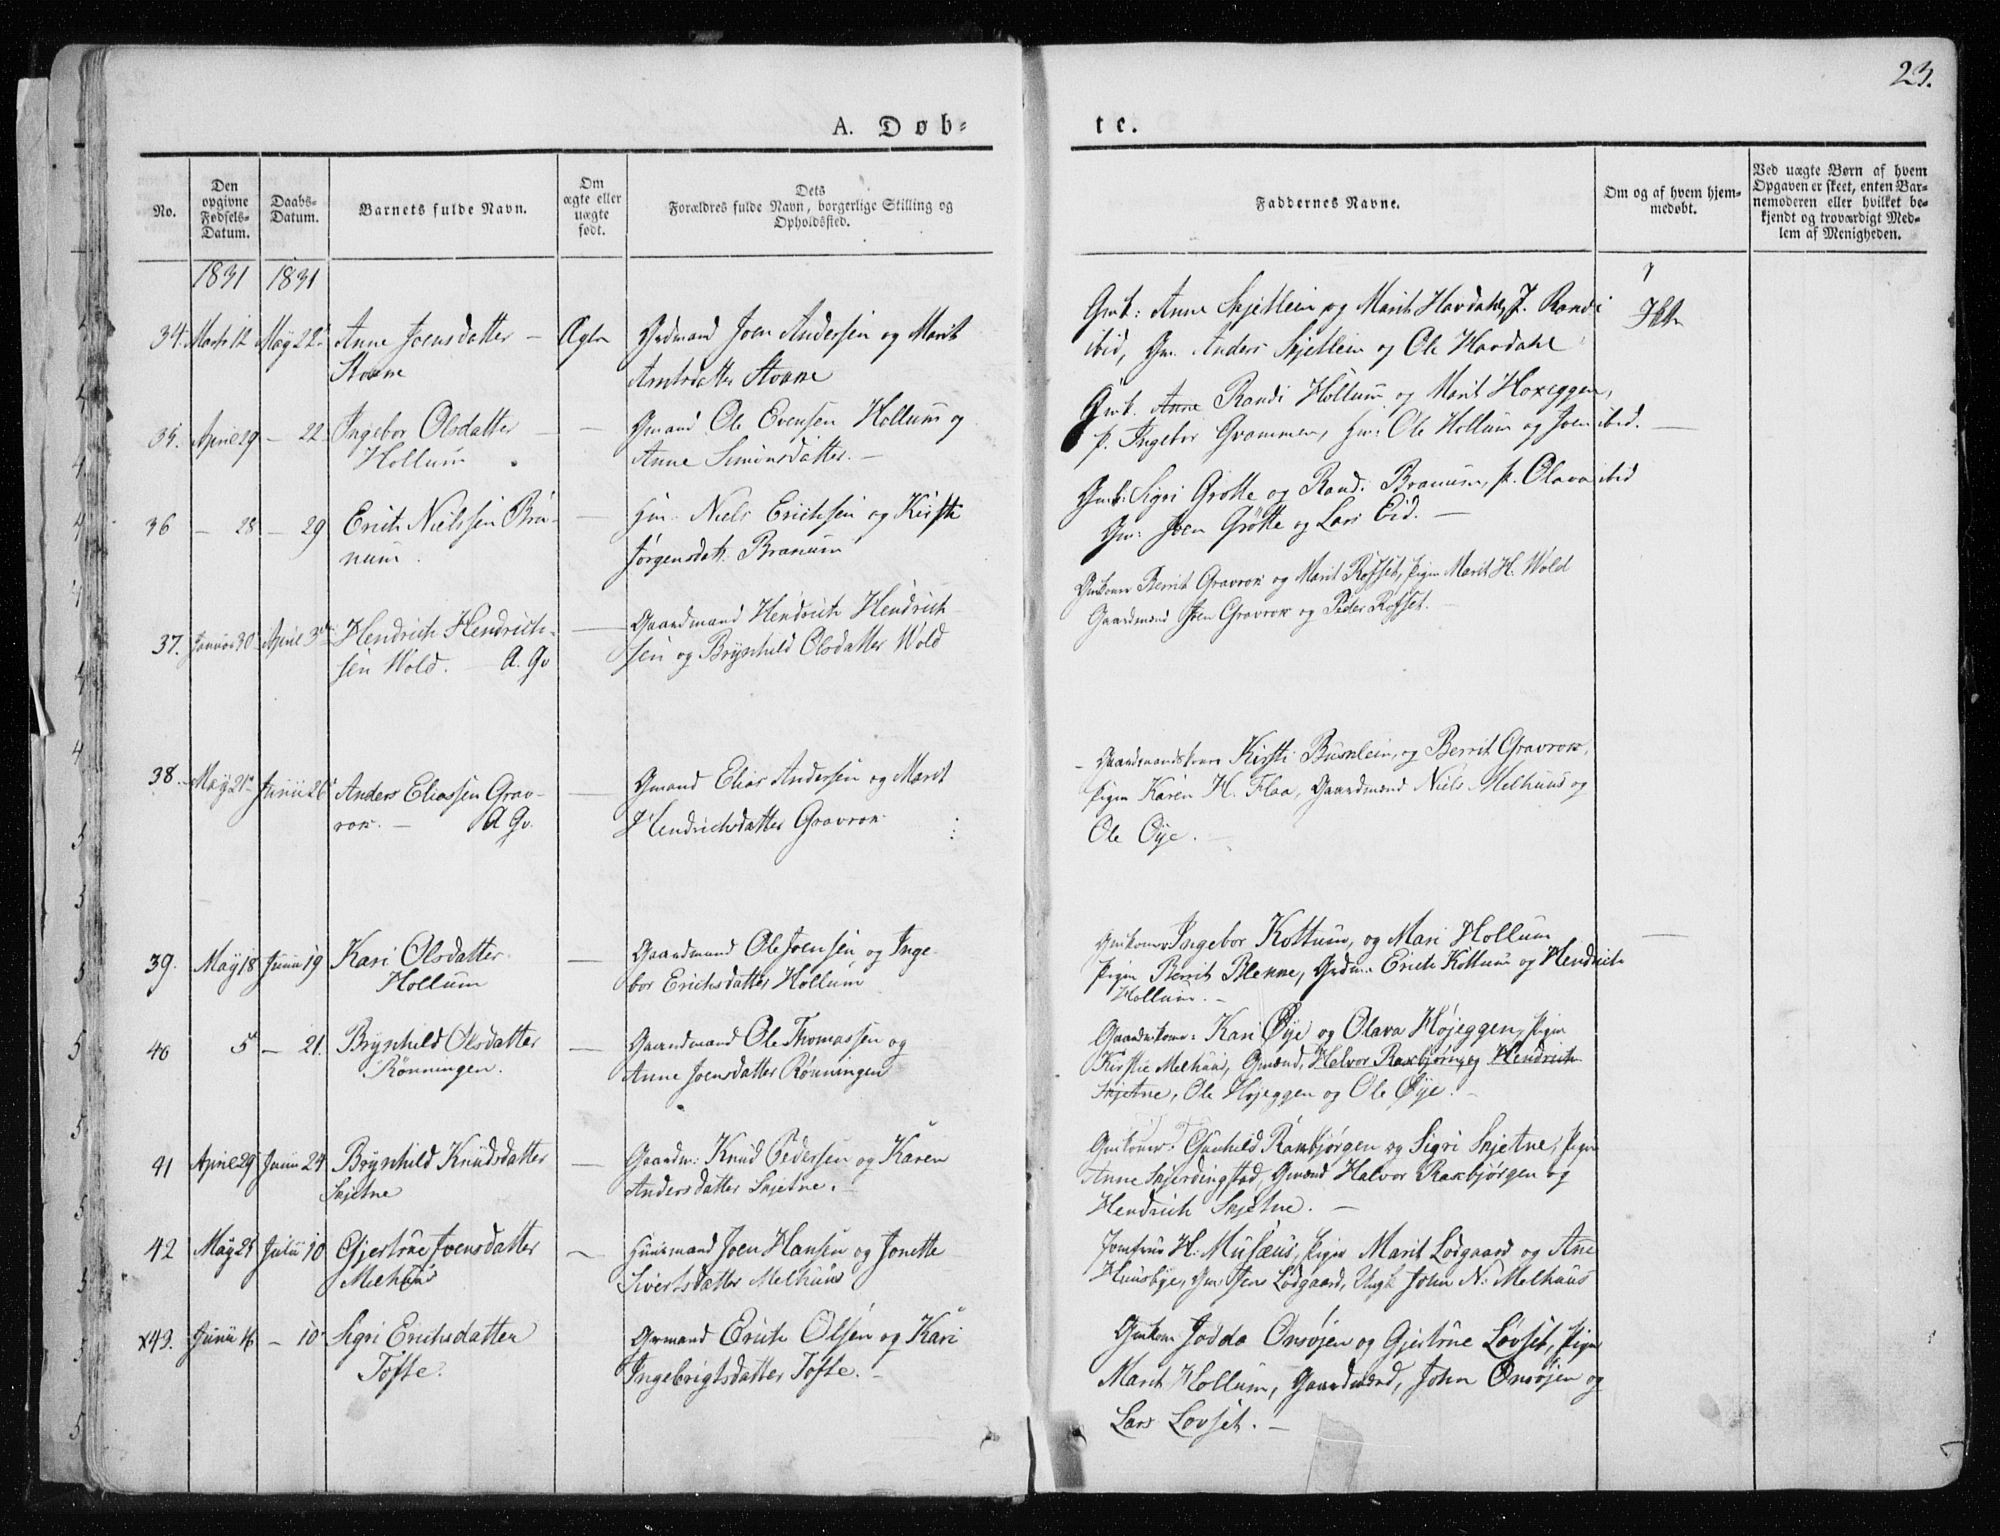 23.
A. Døb-
te.
No.
Den opgivne Fødsels-Datum.
Daabs-Datum.
Barnets fulde Navn.
Om ægte eller uægte født.
Dets Forældres fulde Navn, borgerlige Stilling og Opholdssted.
Faddernes Navne.
Om og af hvem hjemmedøbt.
Ved uægte Børn af hvem Opgaven er skeet, enten Barnemoderen eller hvilket bekjendt og troværdigt Medlem af Menigheden.
1831 1831
34. Marts 12 May 22 Anne Joensdatter — Ægte Grdmand Joen Andersen og Marit
Arntsdatter
Gmk: Anne Skjetlein og Marit Havdahl, P. Randi
ibid, Gm. Anders Skjetlein og Ole Havdahl
35. April 29 — 22. Ingebor Olsdatter — — Gmand Ole Evensen Hollum og
Hollum Anne Simonsdatter. —
Gmk. Anne Randi Hollum og Marit Hoxeggen,
p. Ingebor Grammen, Hm: Ole Hollum og Joen ibid. —
36 — 28 — 29 Erich Nielssen Bra- — Hm. Niels Erichsen og Kirsti
num. Jørgensdatr. Branum
Gmk: Sigri Grötte og Randi Branum, p. Olava ibid
Gm: Joen Grötte og Lars Eid. —
37. Januar 30 April 3die Hendrich Hendrich- — Gaardmand Hendrich Hendrich-
sen Wold. — A. Gv sen og Brynhild Olsdatter Wold
Gmkoner Berrit Gravrok og Marit Rofset, Pigen Marit H. Wold
Gaardmænd Joen Gravrok og Peder Rofset. —
38. — May 21 Junii 26 Anders Eliassen Grav- — Gmand Elias Andersen og Marit
rok. — A Gv. Hendrichsdatter Gravrok
Gaardmandskoner Kirsti Buenlein, og Berrit Gravrok,
Pigen Karen H. Flaa, Gaardmænd Niels Melhuus og
Ole Øye. —
39. May 18 Junii 19 Kari Olsdatter — Gaardmand Ole Joensen og Inge-
Hollum bor Erichsdatter Hollum
Gmkoner Ingebor Kottum, og Mari Hollum —
Pigen Berrit Blekne, Grdm. Erich Kottum og Hendrich
Hollum. —
40 5 — 21. Brynhild Olsdatter — Gaardmand Ole Thomassen og
Rönningen. Anne Joensdatter Rönningen
Gaardmkoner: Kari Øye og Olava Højeggen, Pigen
Kirstie Melhuus, Gmænd, Halvor Raxbjörn, og Hendrich
Skjetne, Ole Højeggen og Ole Øye. —
41 April 29 Junii 24 Brynhild Knudsdatter — Gaardm: Knud Pedersen og Karen
Skjetne Andersdatter Skjetne. —
Gmkoner: Gunhild Raxbjørgen og Sigri Skjetne, Pigen
Anne Skjerdingstad, Gmænd Halvor Raxbjørgen og
Hendrich Skjetne. —
42 May 21 Julii 10 Gjertrue Joensdatter — Huusmand Joen Hansen og Jonette
Melhuus Sivertsdatter Melhuus
Jomfrue H. Musæus, Piger Marit Lodgaard og Ane
Huusbye, Gm Jens Lodgaard, Ungk John N. Melhuus
x43. Junii 16 — 10 Sigri Erichsdatter Garmand Erich Olsen og Kari
Tofte. Ingebrigtsdatter Tofte. —
Gmkoner Jodda Onsøjen og Gjertrue Lovset, Pigen
Marit Hollum, Gaardmænd, John Onsøjen og
Lars Lovset. —